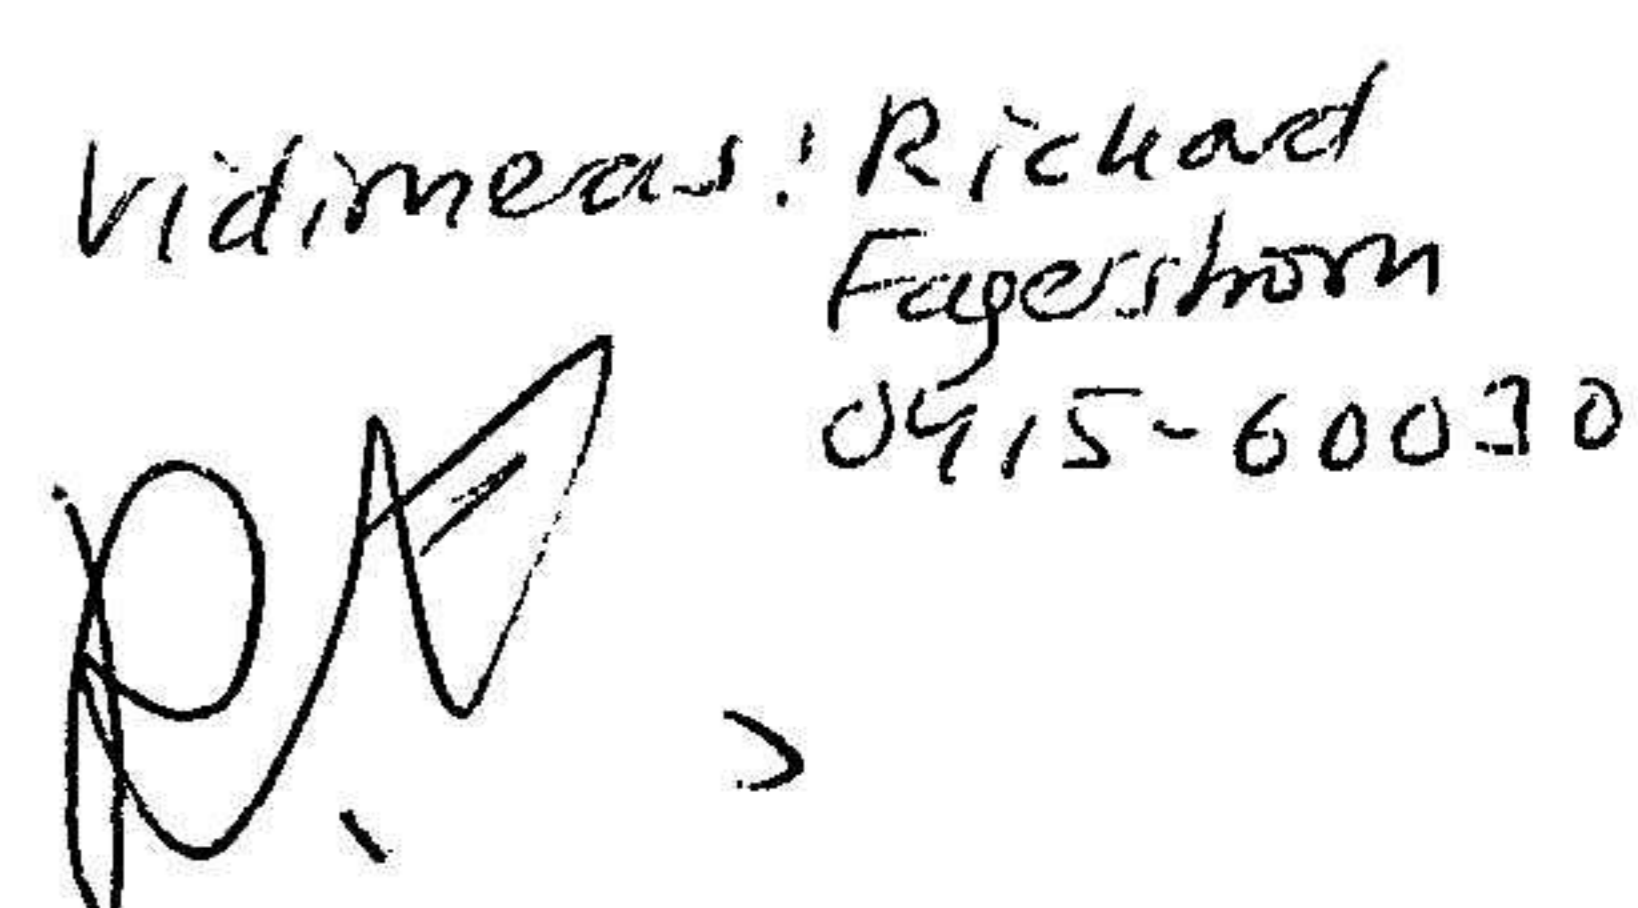 Vidimeras: Richard
Fagershorn
0415-60030